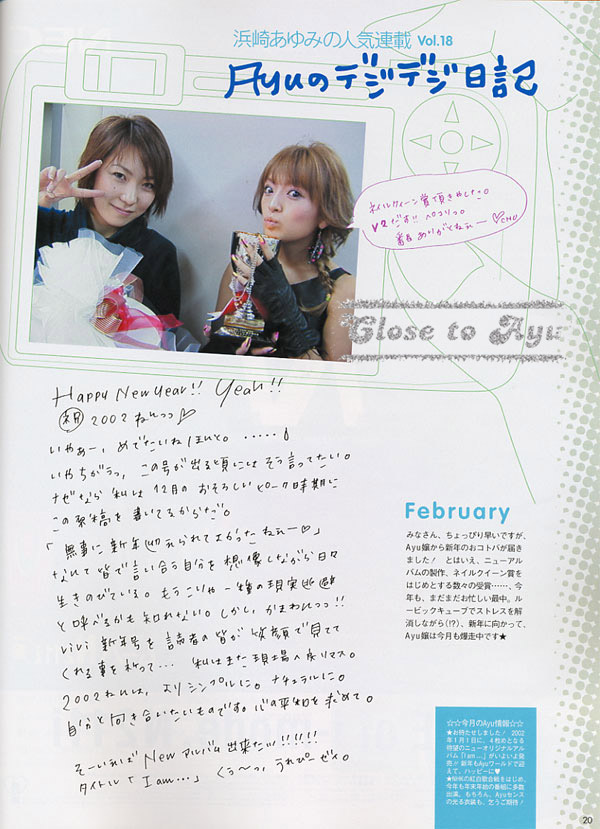 浜崎あゆみの人気連載 Vol.18
Ayuのデジデジ日記
ネイルクィーン賞頂きました。
V2だす!! ペコリっ。
番長ありがとねぇー♡CHU
Close to Ayu
Happy New Year!! Yeah!!
㊗ 2002ねんっっ♡
いやぁー、めでたいねほんと。……♪
いやちがうっ、この号が出る頃にはそう言ってたい。
なぜなら私は12月のおそろしいピーク時期に
この原稿を書いてるからだ。
「無事に新年迎えられてよかったねぇー♡」
なんて皆で言い合う自分を想像しながら日々
生きのびている。もうこいゃ一種の現実逃避
と呼べるかも知れない。しかし、かまわんっっ!!
ViVi新年号を読者の皆が笑顔で見てて
くれる事を祈って… 私はまた現場へ戻りマス。
2002ねんは、よりシンプルに。ナチュラルに。
自分と向き合いたいものです。心の平和を求めて。
そーいえばNewアルバム出来たっ!!!!!!
タイトル「I am…」くぅ〜っ、うれぴーぜィ。
February
みなさん、ちょっぴり早いですが、
Ayu嬢から新年のおコトバが届き
ました! とはいえ、ニューアル
バムの製作、ネイルクイーン賞を
はじめとする数々の受賞……、今
年も、まだまだお忙しい最中。ル
ービックキューブでストレスを解
消しながら(!?)、新年に向かって、
Ayu嬢は今月も爆走中です★
☆☆今月のAyu情報☆☆
★お待たせしました! 2002
年1月1日に、4枚めとなる
待望のニューオリジナルアル
バム『I am…』がいよいよ発
売!! 新年もAyuワールドで迎
えて、ハッピーに♥
★NHKの紅白歌合戦をはじめ、
今年も年末年始の番組に多数
出演。もちろん、Ayuセンス
の光る衣装も、乞うご期待!
20